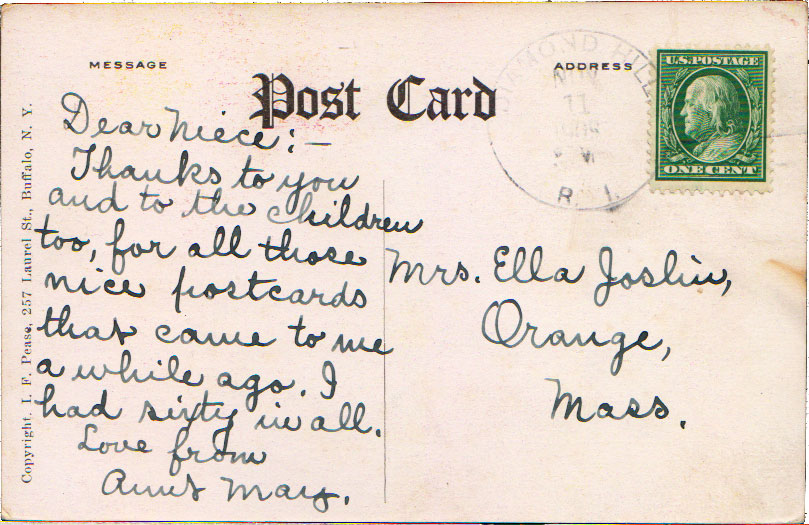 MESSAGE
ADDRESS
Post Card
Dear Niece:—
Thanks to you
and to the children
too, for all those
nice postcards
that came to me
a while ago. I
had sixty in all.
Love from
Aunt May.
Mrs. Ella Joslin,
Orange,
Mass.
MOND HILL
NOV
11
R. I.
U.S. POSTAGE
ONE CENT
Copyright, I. F. Pease, 257 Laurel St., Buffalo, N. Y.